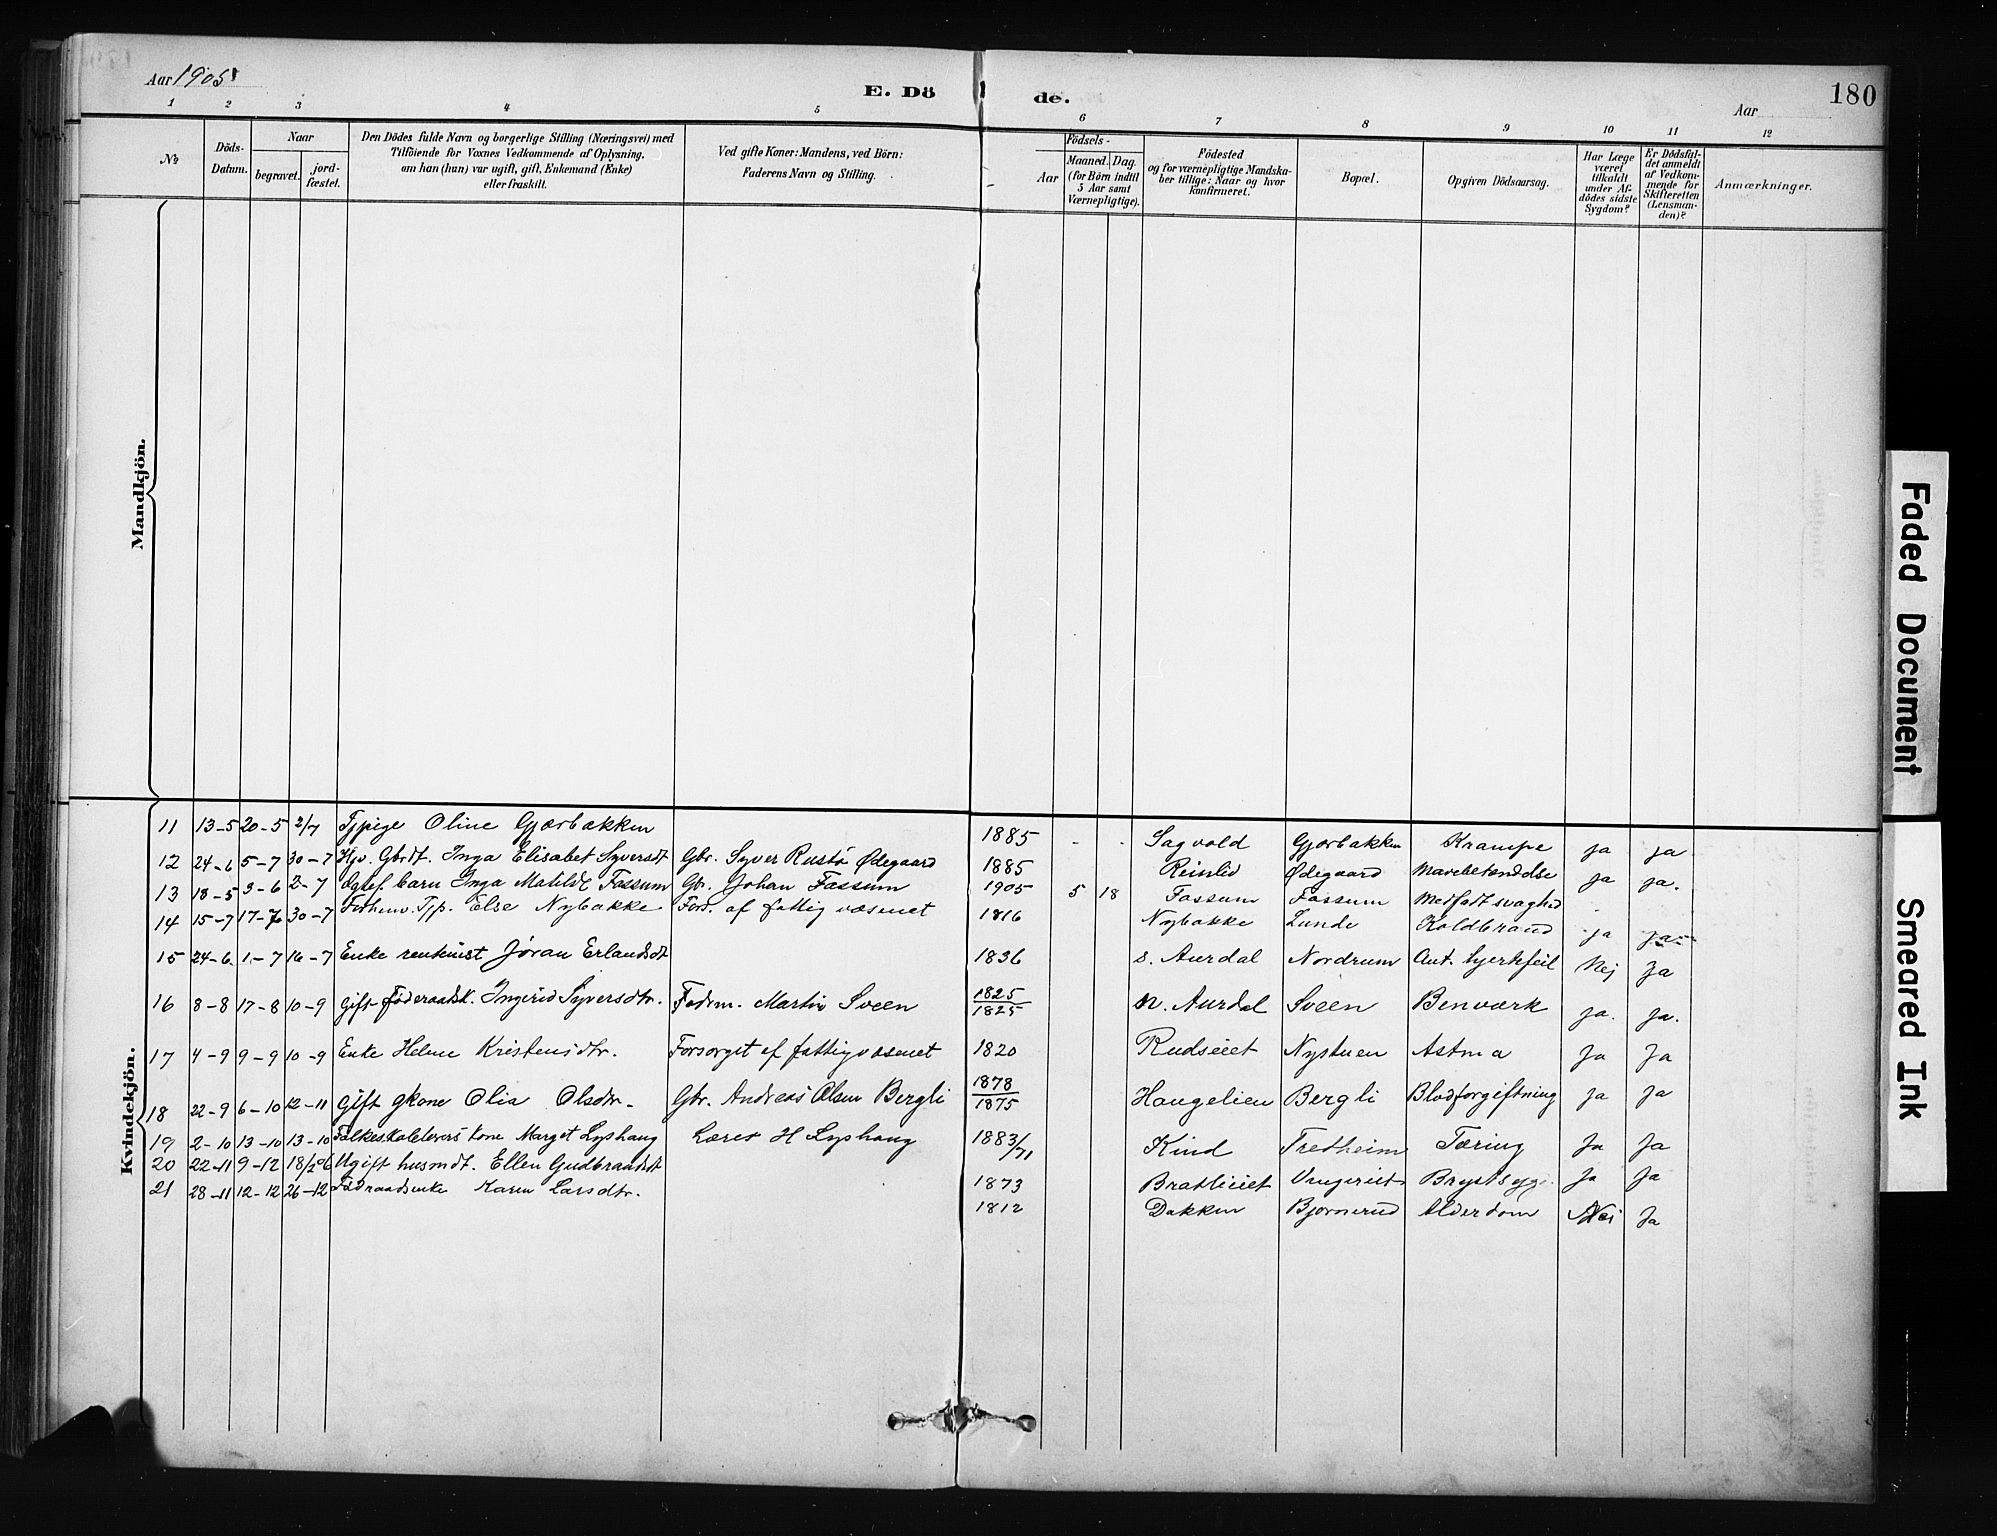 Aar 1905
E. Dö
de.
Aar
180
1 2 3 4 5 6 7 8 9 10 11 12
No
Döds-Datum.
Naar
begravet.
jord-fæstet.
Den Dödes fulde Navn og borgerlige Stilling (Næringsvei) med
Tilföiende for Voxnes Vedkommende af Oplysning,
om han (hun) var ugift, gift, Enkemand (Enke)
eller fraskilt.
Ved gifte Koner: Mandens, ved Börn:
Faderens Navn og Stilling.
Födsels-
Aar
Maaned. Dag.
(for Börn indtil
5 Aar samt
Værnepligtige).
Födested
og for værnepligtige Mandska-
ber tillige: Naar og hvor
konfirmeret.
Bopæl.
Opgiven Dödsaarsag.
Har Læge
været
tilkaldt
under Af-
dödes sidste
Sygdom?
Er Dödsfal-
det anmeldt
af Vedkom-
mende for
Skifteretten
(Lensman-
den)?
Anmærkninger.
Mandkjön.
Kvindekjön.
11 13-5 20-5 2/7 Tjpige Oline Gjørbakken 1885 - - Sagvold Gjørbakken Krampe ja ja
12 24-6 5-7 30-7 Gbrdt. Inga Elisabet Syversdt Gbr. Syver Rustø Ødegaard 1885 Reinlid Ødegaard Mavebetændelse ja ja.
13 18-5 3-6 2-7 Barn Inga Matilde Fossum Gbr. Johan Fossum 1905 5 18 Fossum Fossum Medfødt svaghed
14 15-7 17-7 30-7 Tjp. Else Nybakke Fors. af fattigvæsenet 1816 Nybakke Lunde Koldbrand ja ja
15 24-6. 1-7 16-7 Enke Jøran Erlandsdt 1836 S. Aurdal Nordrum Ant. hjertefeil Nej Ja
16 8-8 17-8 10-9 Gift Føderaadsk. Ingerid Syversdtr. Fødrm. Martin Sveen 1825/1825 N. Aurdal Sveen Benværk ja. ja.
17 4-9 9-9 10-9 Enke Helene Kristensdtr. Forsørget af fattigvæsenet 1820 Rudseiet Nystuen Astma Ja Ja
18 22-9 6-10 12-11 Gift gkone Olia Olsdtr. Gbr. Andreas Olsen Bergli 1878/1875 Haugelien Bergli Blodforgiftning Ja Ja
19 2-10 13-10 13-10 Folkeskolelærers kone Marget Lyshaug Lærer H Lyshaug 1883/71 Kind Tretheim Tæring Ja Ja
20 22-11 9-12 18/2 06 Ugift husmdt. Ellen Gudbrandsdt 1873 Bratlieiet Brystsyge Ja Ja
21 28-11 12-12 26-12 Fødraadsenke Karen Larsdtr. 1812 Dokken Bjørnerud Alderdom Nei Ja
Faded Document
Smeared Ink